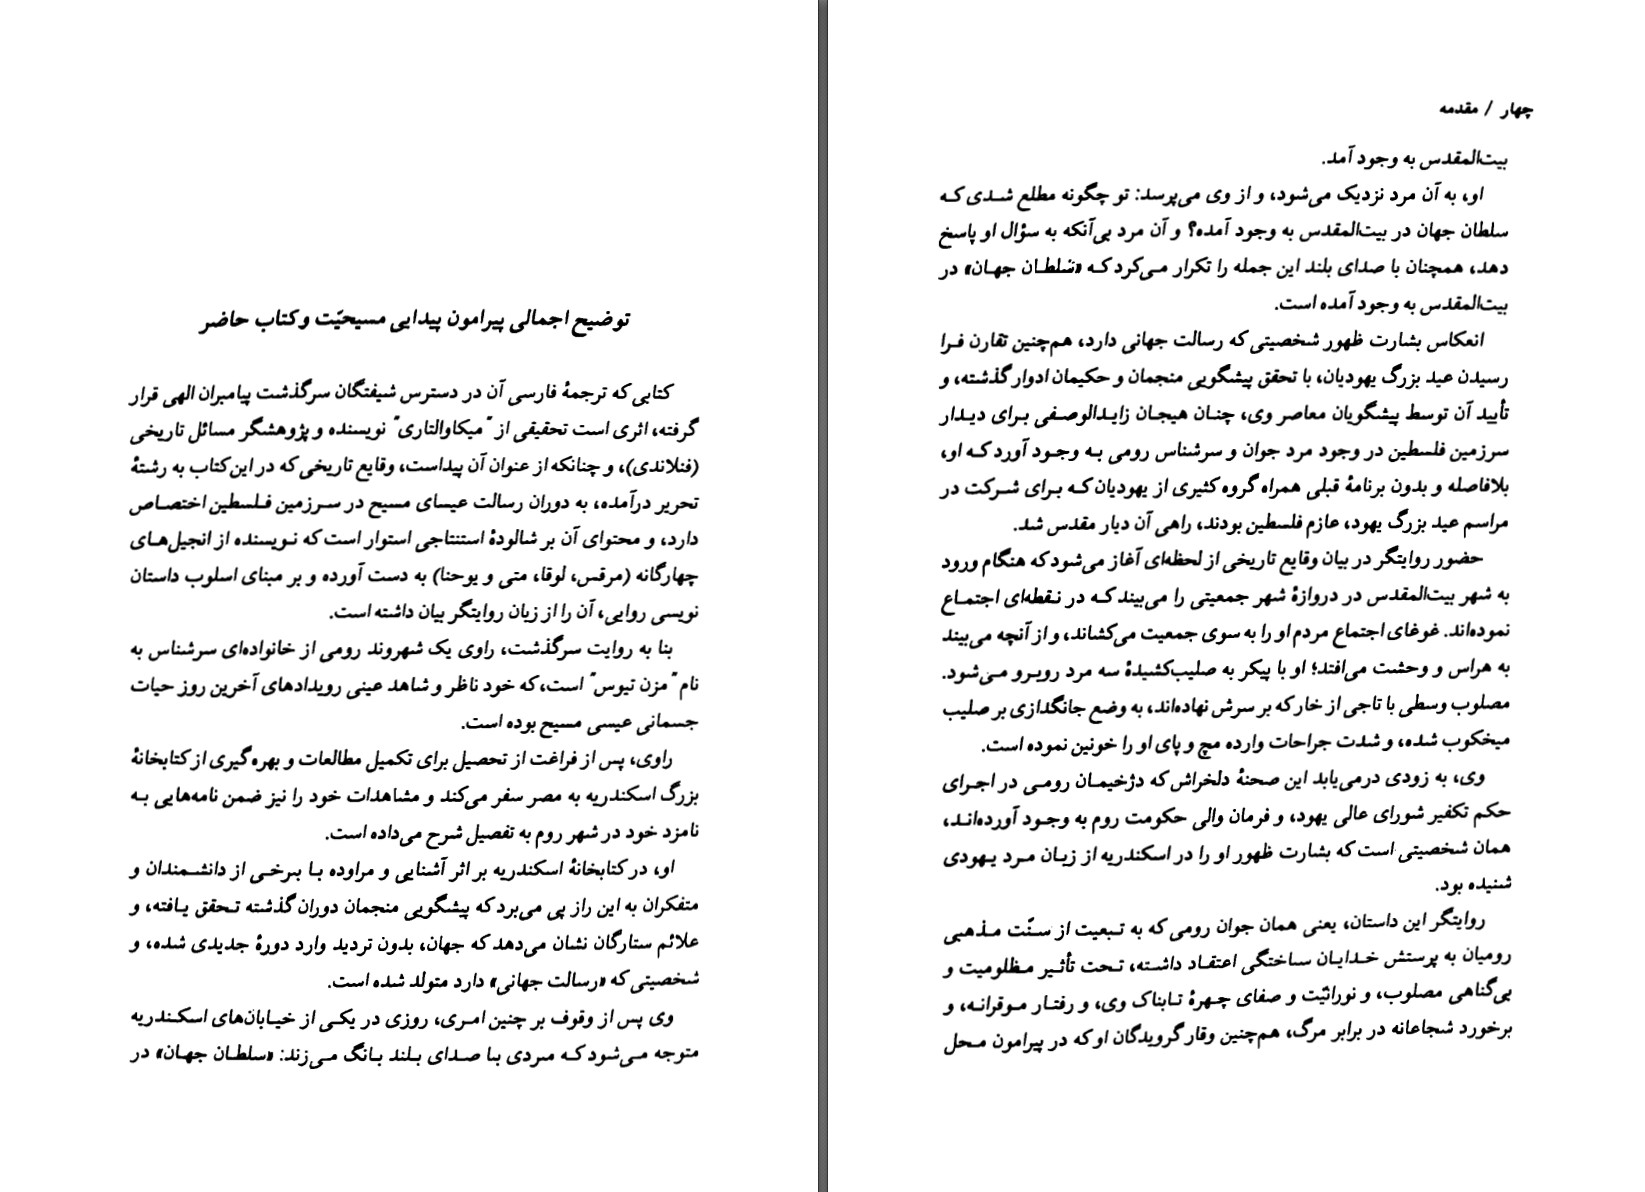 توضیح اجمالی پیرامون پیدایی مسیحیّت و کتاب حاضر
کتابی که ترجمهٔ فارسی آن در دسترس شیفتگان سرگذشت پیامبران الهی قرار
گرفته، اثری است تحقیقی از "میکاوالتاری" نویسنده و پژوهشگر مسائل تاریخی
(فنلاندی)، و چنانکه از عنوان آن پیداست، وقایع تاریخی که در این کتاب به رشتهٔ
تحریر درآمده، به دوران رسالت عیسای مسیح در سرزمین فلسطین اختصاص
دارد، و محتوای آن بر شالودهٔ استنتاجی استوار است که نویسنده از انجیل‌های
چهارگانه (مرقس، لوقا، متی و یوحنا) به دست آورده و بر مبنای اسلوب داستان
نویسی روایی، آن را از زبان روایتگر بیان داشته است.
بنا به روایت سرگذشت، راوی یک شهروند رومی از خانواده‌ای سرشناس به
نام "مزن تیوس" است، که خود ناظر و شاهد عینی رویدادهای آخرین روز حیات
جسمانی عیسی مسیح بوده است.
راوی، پس از فراغت از تحصیل برای تکمیل مطالعات و بهره‌گیری از کتابخانهٔ
بزرگ اسکندریه به مصر سفر می‌کند و مشاهدات خود را نیز ضمن نامه‌هایی به
نامزد خود در شهر روم به تفصیل شرح می‌داده است.
او، در کتابخانهٔ اسکندریه بر اثر آشنایی و مراوده با برخی از دانشمندان و
متفکران به این راز پی می‌برد که پیشگویی منجمان دوران گذشته تحقق یافته، و
علائم ستارگان نشان می‌دهد که جهان، بدون تردید وارد دورهٔ جدیدی شده، و
شخصیتی که «رسالت جهانی» دارد متولد شده است.
وی پس از وقوف بر چنین امری، روزی در یکی از خیابان‌های اسکندریه
متوجه می‌شود که مردی با صدای بلند بانگ می‌زند: «سلطان جهان» در
چهار / مقدمه
بیت‌المقدس به وجود آمد.
او، به آن مرد نزدیک می‌شود، و از وی می‌پرسد: تو چگونه مطلع شدی که
سلطان جهان در بیت‌المقدس به وجود آمده؟ و آن مرد بی‌آنکه به سؤال او پاسخ
دهد، همچنان با صدای بلند این جمله را تکرار می‌کرد که «سُلطان جهان» در
بیت‌المقدس به وجود آمده است.
انعکاس بشارت ظهور شخصیتی که رسالت جهانی دارد، هم‌چنین تقارن فرا
رسیدن عید بزرگ یهودیان، با تحقق پیشگویی منجمان و حکیمان ادوار گذشته، و
تأیید آن توسط پیشگویان معاصر وی، چنان هیجان زایدالوصفی برای دیدار
سرزمین فلسطین در وجود مرد جوان و سرشناس رومی به وجود آورد که او،
بلافاصله و بدون برنامهٔ قبلی همراه گروه کثیری از یهودیان که برای شرکت در
مراسم عید بزرگ یهود، عازم فلسطین بودند، راهی آن دیار مقدس شد.
حضور روایتگر در بیان وقایع تاریخی از لحظه‌ای آغاز می‌شود که هنگام ورود
به شهر بیت‌المقدس در دروازهٔ شهر جمعیتی را می‌بیند که در نقطه‌ای اجتماع
نموده‌اند. غوغای اجتماع مردم او را به سوی جمعیت می‌کشاند، و از آنچه می‌بیند
به هراس و وحشت می‌افتد؛ او با پیکر به صلیب‌کشیدهٔ سه مرد روبرو می‌شود.
مصلوب وسطی با تاجی از خار که بر سرش نهاده‌اند، به وضع جانگدازی بر صلیب
میخکوب شده، و شدت جراحات وارده مچ و پای او را خونین نموده است.
وی، به زودی درمی‌یابد این صحنهٔ دلخراش که دژخیمان رومی در اجرای
حکم تکفیر شورای عالی یهود، و فرمان والی حکومت روم به وجود آورده‌اند،
همان شخصیتی است که بشارت ظهور او را در اسکندریه از زبان مرد یهودی
شنیده بود.
روایتگر این داستان، یعنی همان جوان رومی که به تبعیت از سنّت مذهبی
رومیان به پرستش خدایان ساختگی اعتقاد داشته، تحت تأثیر مظلومیت و
بی‌گناهی مصلوب، و نورانیّت و صفای چهرهٔ تابناک وی، و رفتار موقرانه، و
برخورد شجاعانه در برابر مرگ، هم‌چنین وقار گرویدگان او که در پیرامون محل